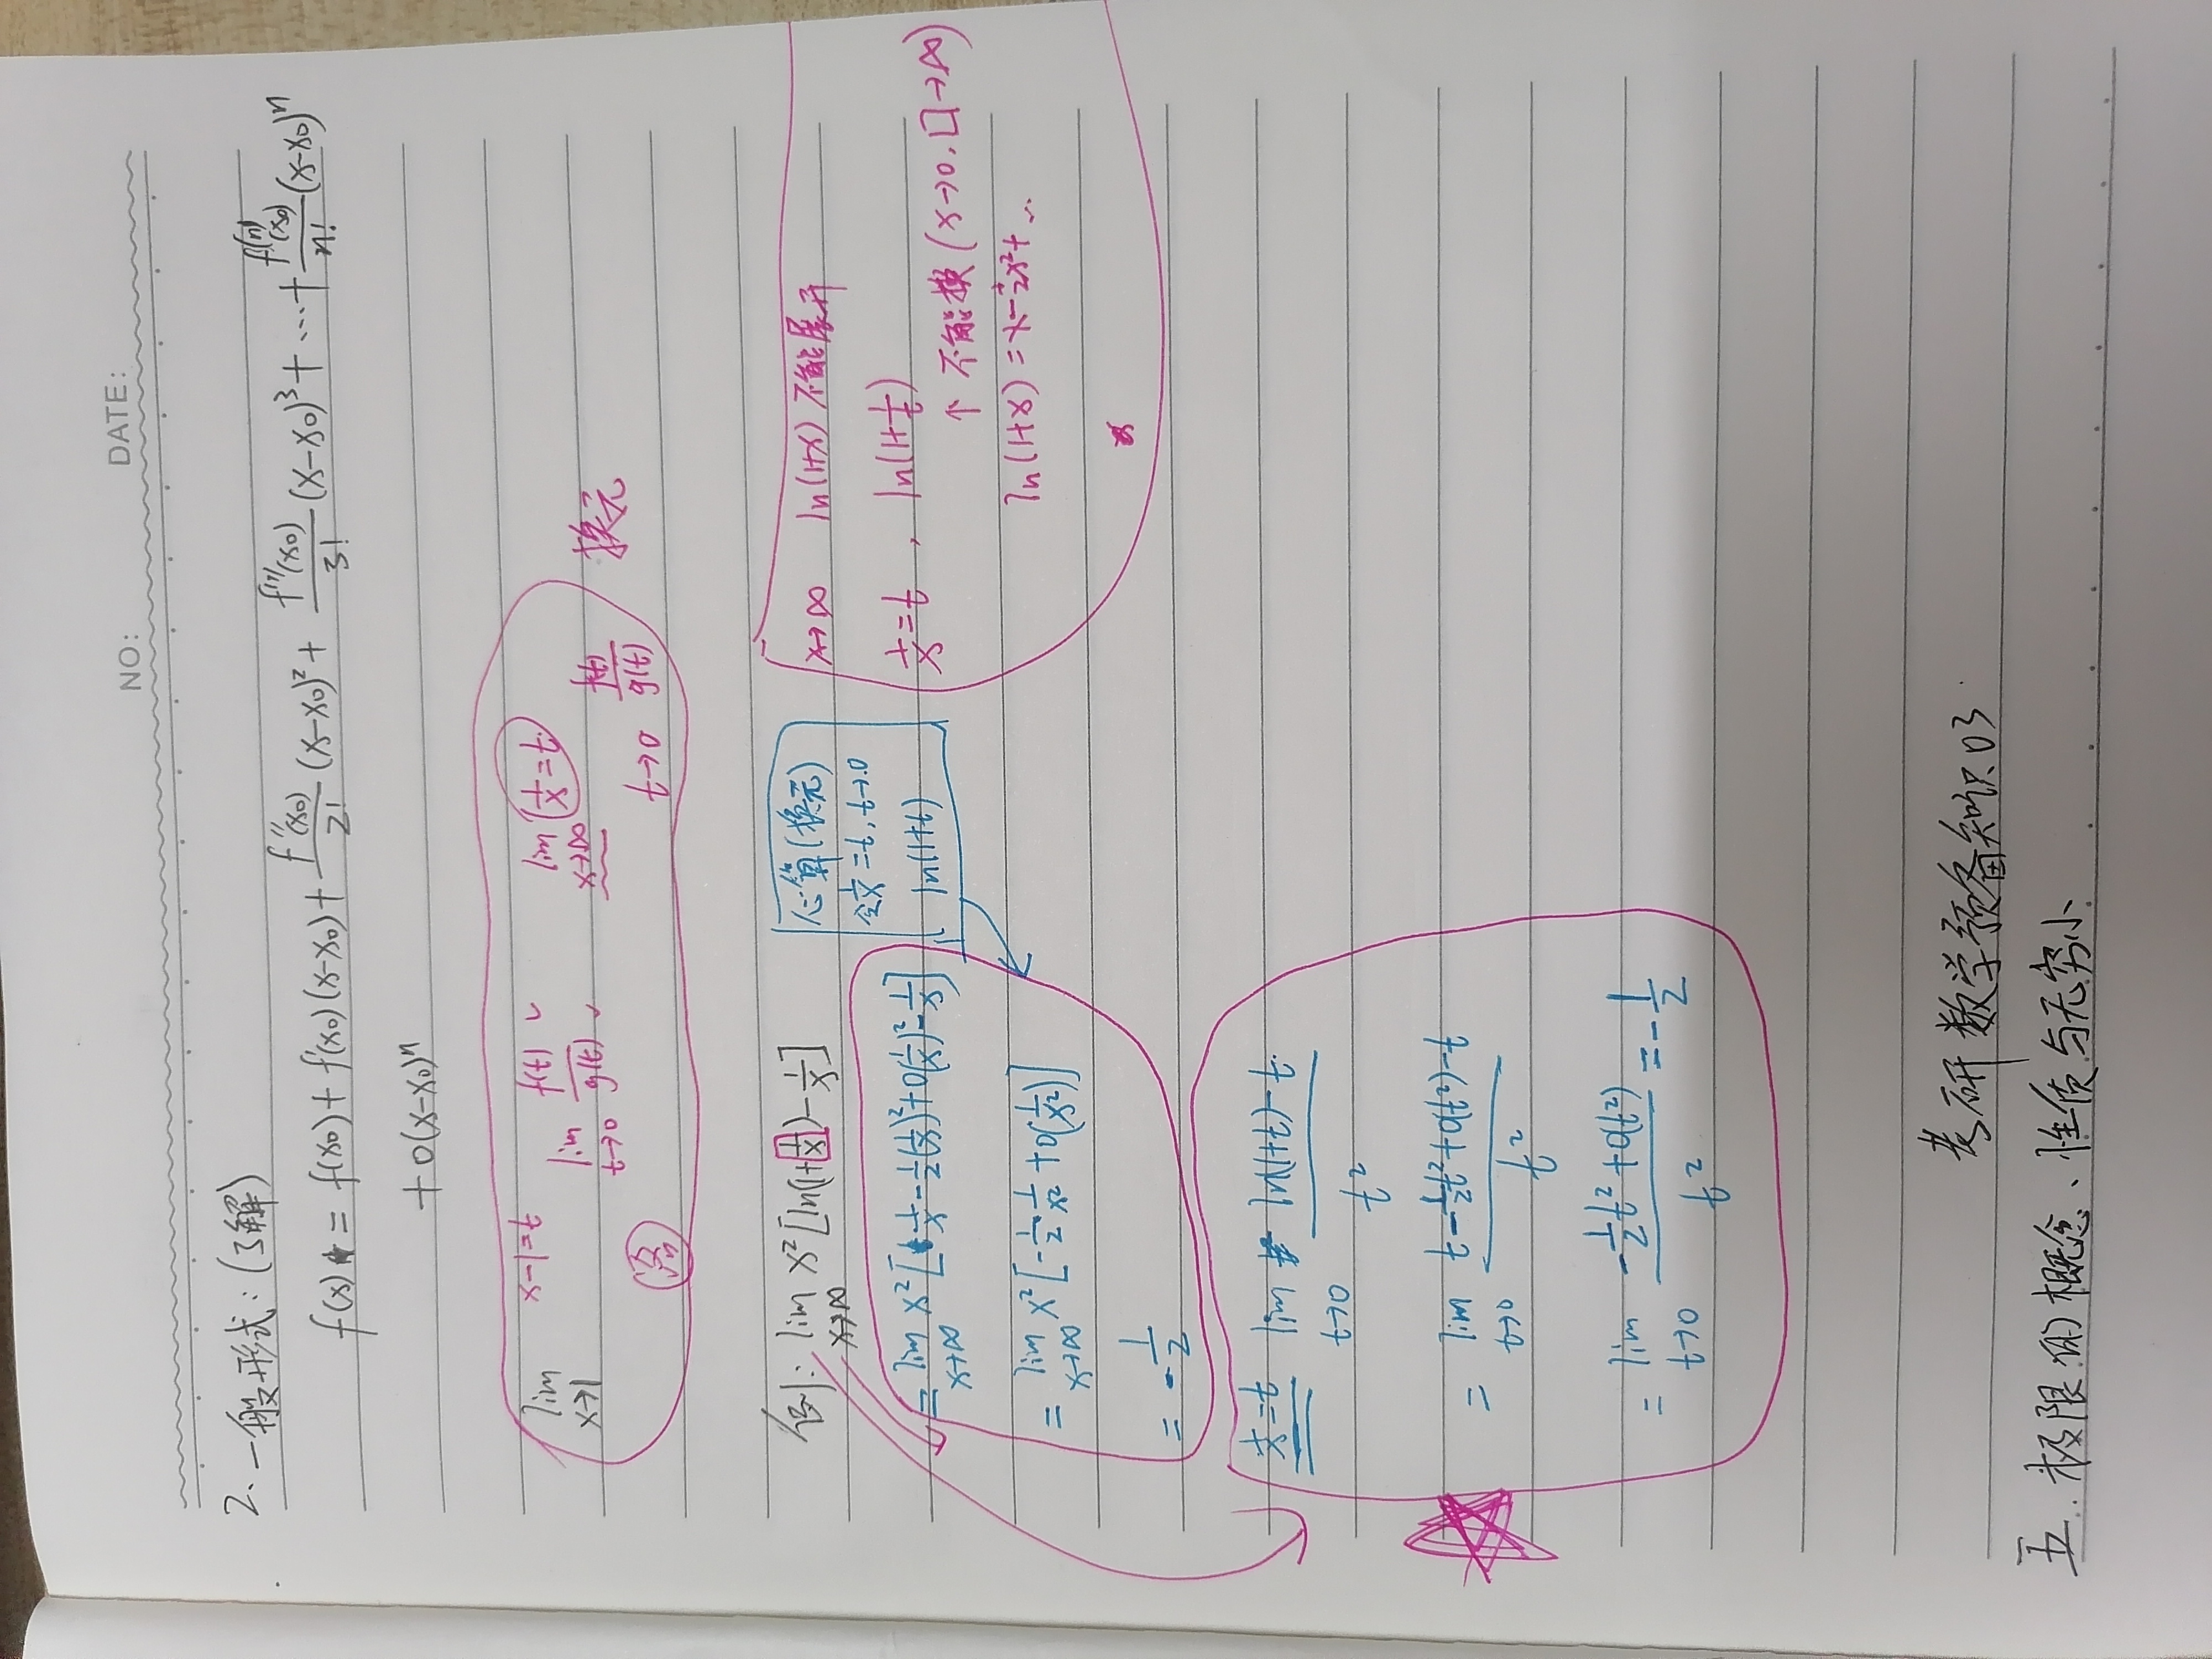 NO:
DATE:
2. 一般形式：(了解)
f(x) = f(x₀) + f'(x₀)(x-x₀) + f''(x₀)/2! (x-x₀)² + f'''(x₀)/3! (x-x₀)³ + … + f⁽ⁿ⁾(x₀)/n! (x-x₀)ⁿ
+ o(x-x₀)ⁿ
lim x→1 x-1=t lim t→0 f(t)/g(t) ✓ lim x→∞ 1/x=t t→0 f(t)/g(t) 换元
例: lim x→∞ x²[ln(1+1/x)-1/x]
= lim x→∞ x²[1/x-1/2(1/x)²+o(1/x)²-1/x]
= lim x→∞ x²[-1/2 1/x²+o(1/x²)]
= -1/2
心算(换元)
令1/x=t, t→0
ln(1+t)
x→∞ ln(1+x)不能展开
1/x=t, ln(1+1/t)
↑ 不能换(x→0, □→∞)
ln(1+x)=x-1/2x²+…
1/x=t lim t→0 ln(1+t)-t / t²
= lim t→0 t-1/2t²+o(t²)-t / t²
= lim t→0 -1/2t²+o(t²) / t² = -1/2
考研数学预备知识03
五.极限的概念、性质与无穷小